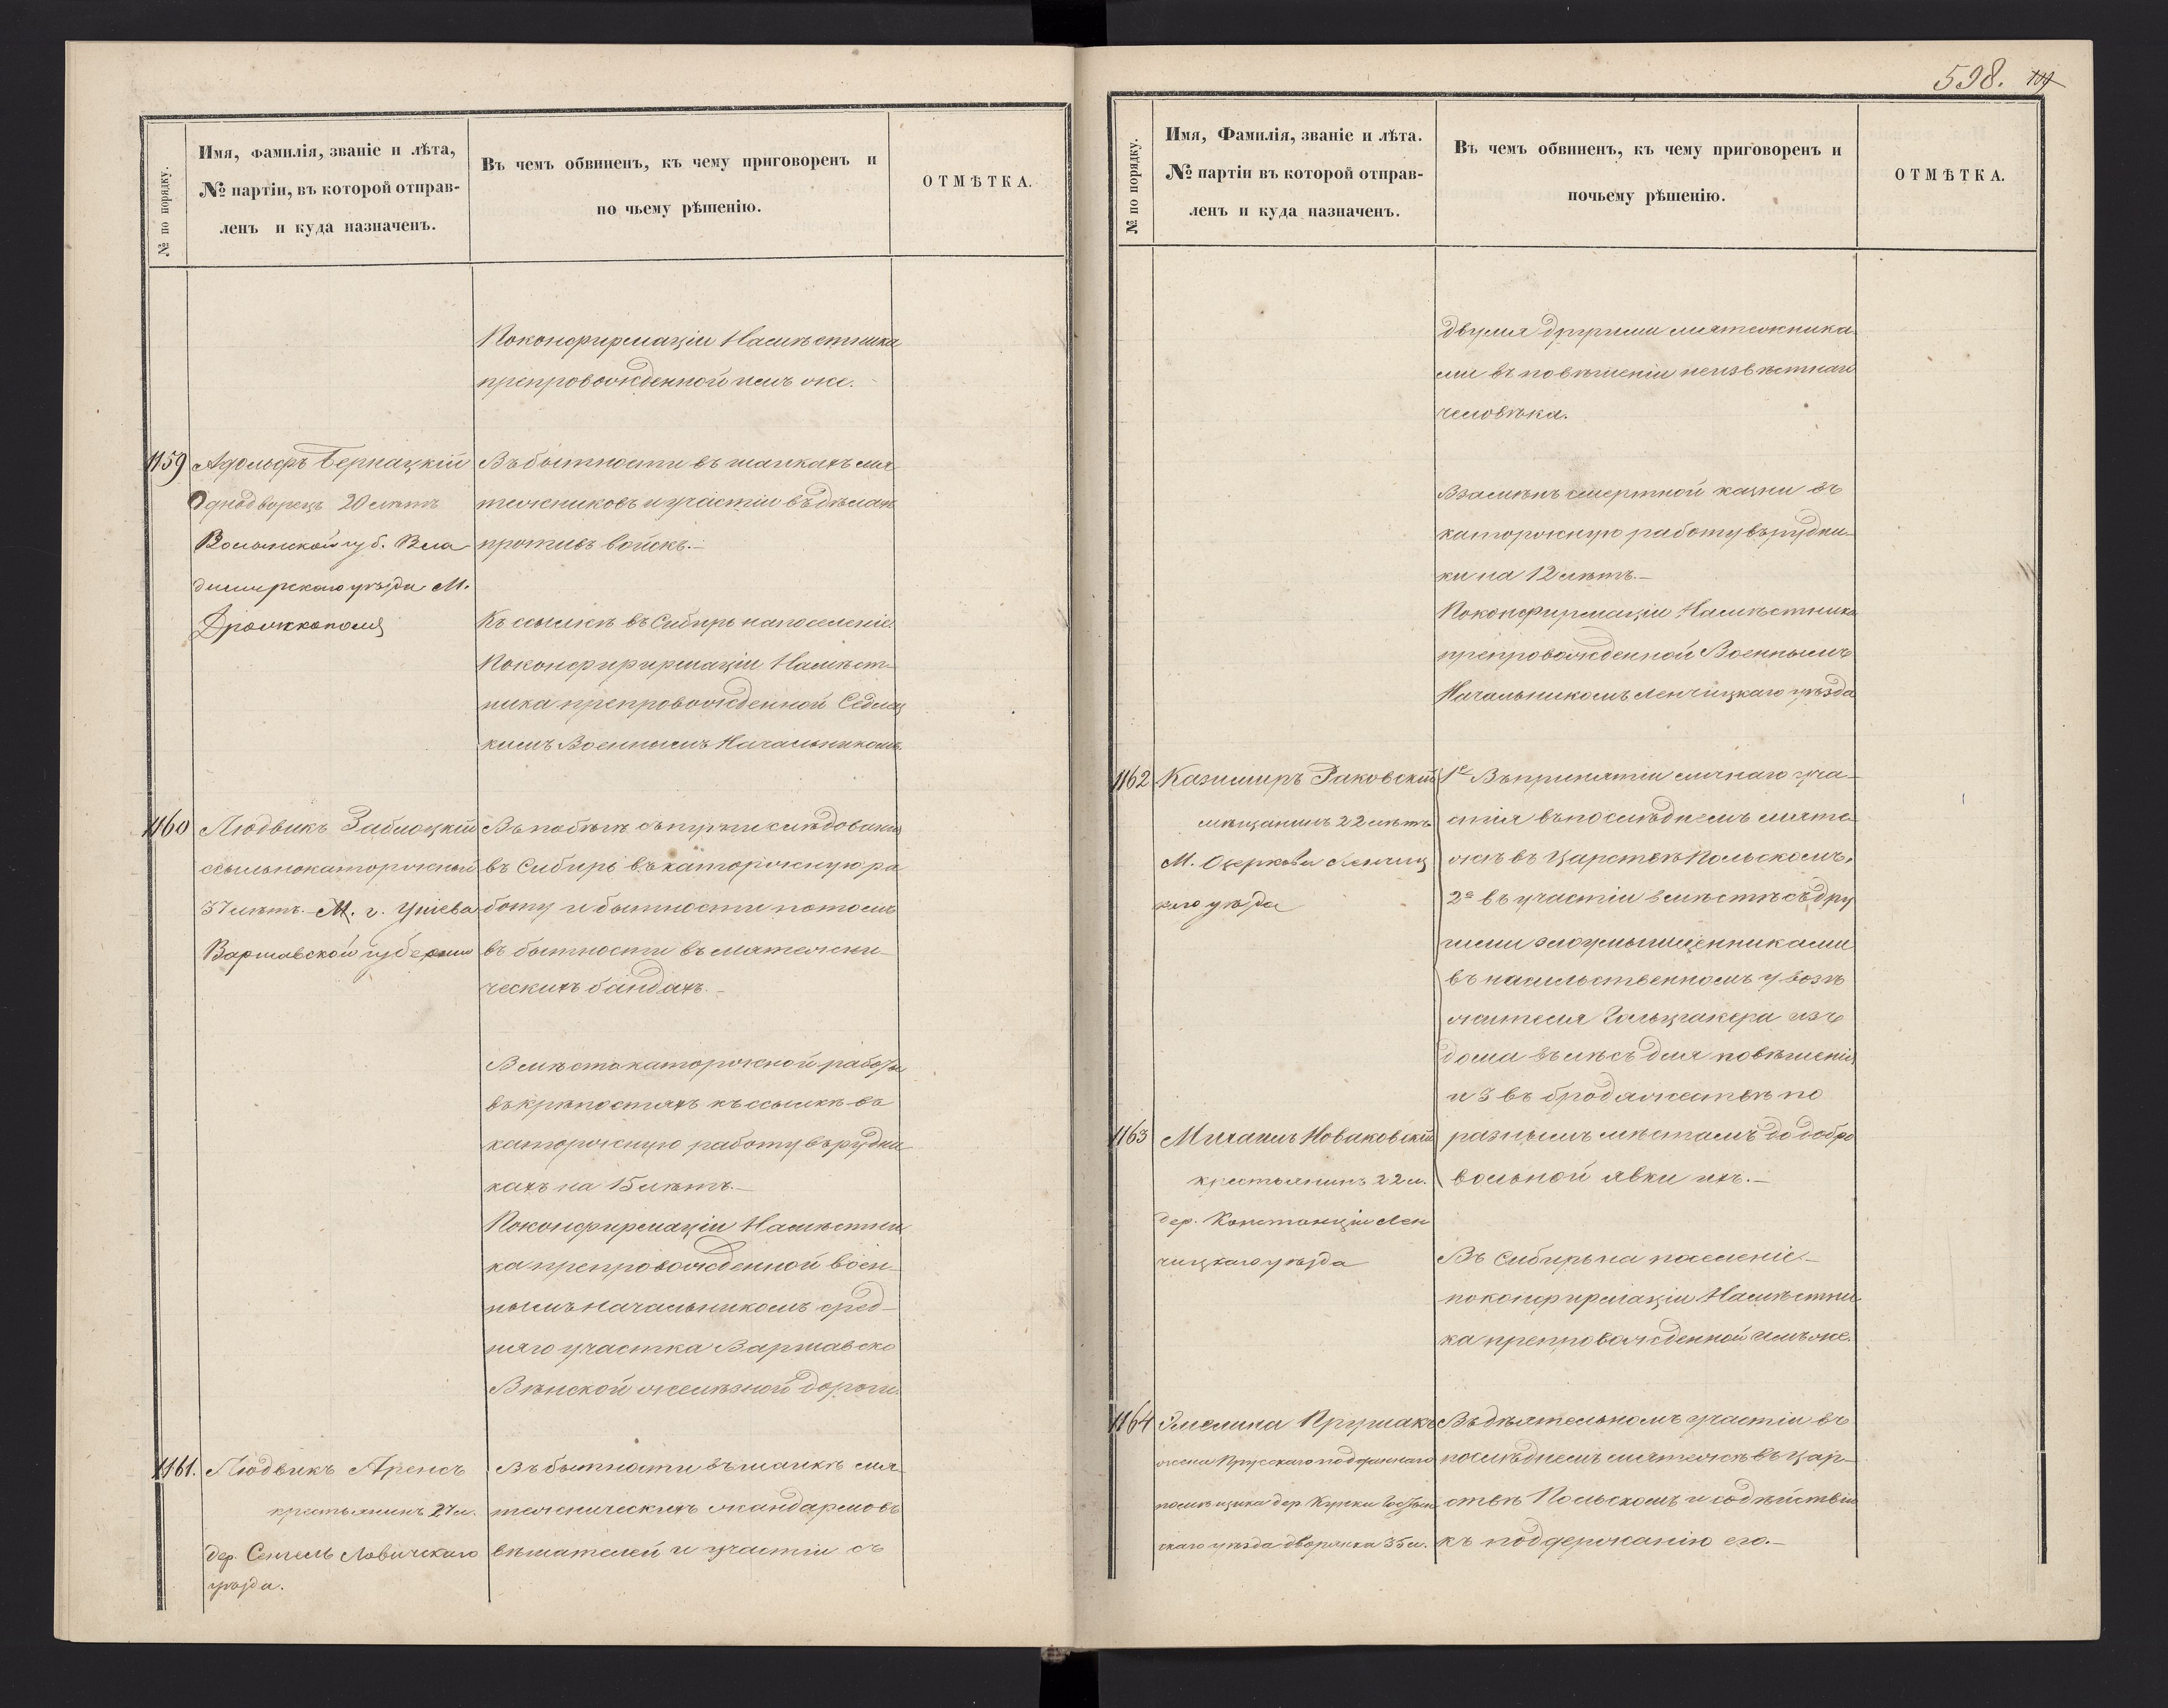 598. 109
№ по порядку.
Имя, фамилія, званіе и лѣта,
№ партіи, въ которой отправ-
ленъ и куда назначенъ.
Въ чемъ обвиненъ, къ чему приговоренъ и
по чьему рѣшенію.
ОТМѢТКА.
По конфирмаціи Намѣстника
препровожденной имъ же.
1159
Адольфъ Бернацкій
Однодворецъ 20 лѣтъ
Волынской губ. Вла
димирскаго уѣзда М.
Дружкополя
Въ бытности въ шайкахъ мя
тежниковъ и участіи въ дѣлахъ
противъ войскъ.—
Къ ссылкѣ въ Сибирь на поселеніе
По конфирмаціи Намѣст-
ника препровожденной Седлец
кимъ Военнымъ Начальникомъ.
1160
Людвикъ Заблоцкій
ссыльнокаторжный
37 лѣтъ.— М. г. Уніева
Варшавской губерніи
Въ побѣгѣ съ пути слѣдованія
въ Сибирь въ каторжную ра
боту и бытности потомъ
въ бытности въ мятежни-
ческихъ бандахъ.—
Вмѣсто каторжной работы
въ крѣпостяхъ къ ссылкѣ въ
каторжную работу въ рудни
кахъ на 15 лѣтъ.—
По конфирмаціи Намѣстни
ка препровожденной воен-
нымъ начальникомъ сред-
няго участка Варшавско
Вѣнской желѣзной дороги.
1161.
Людвикъ Аренсъ
крестьянинъ 27 л.
дер. Ловичскаго
уѣзда.
Въ бытности въ шайкѣ мя
тежническихъ жандармовъ
вѣшателей и участіи съ
№ по порядку.
Имя, Фамилія, званіе и лѣта.
№ партіи въ которой отправ-
ленъ и куда назначенъ.
Въ чемъ обвиненъ, къ чему приговоренъ и
почьему рѣшенію.
ОТМѢТКА.
двумя другими мятежника
ми въ повѣшеніи неизвѣстнаго
человѣка.
Взамѣнъ смертной казни въ
каторжную работу въ рудни-
ки на 12 лѣтъ.—
По конфирмаціи Намѣстника
препровожденной Военнымъ
Начальникомъ Ленчицкаго уѣзда
1162
Казимиръ Раковскій
мѣщанинъ 22 лѣтъ
М. Озеркова Ленчиц
каго уѣзда
1е Въ принятіи личнаго уча-
стія въ послѣднемъ мяте
жѣ въ Царствѣ Польскомъ,
2е въ участіи вмѣстѣ съ дру
гими злоумышленниками
въ насильственномъ увозѣ
жителя изъ
дома въ лѣсъ для повѣшенія
и 3 въ бродяжествѣ по
1163
Михаилъ Новаковскій
крестьянинъ 22 л.
дер. Констанціи Лен
чицкаго уѣзда
разнымъ мѣстамъ до добро
вольной явки ихъ.—
Въ Сибирь на поселеніе.—
по конфирмаціи Намѣстни
ка препровожденной имъ же.
1164
Эмелина Прушакъ
жена Прусскаго подданнаго
помѣщика дер. Гостын
скаго уѣзда дворянка 35 л.
Въ дѣятельномъ участіи въ
послѣднемъ мятежѣ въ Цар-
ствѣ Польскомъ и содѣйствіи
къ поддержанію его.—